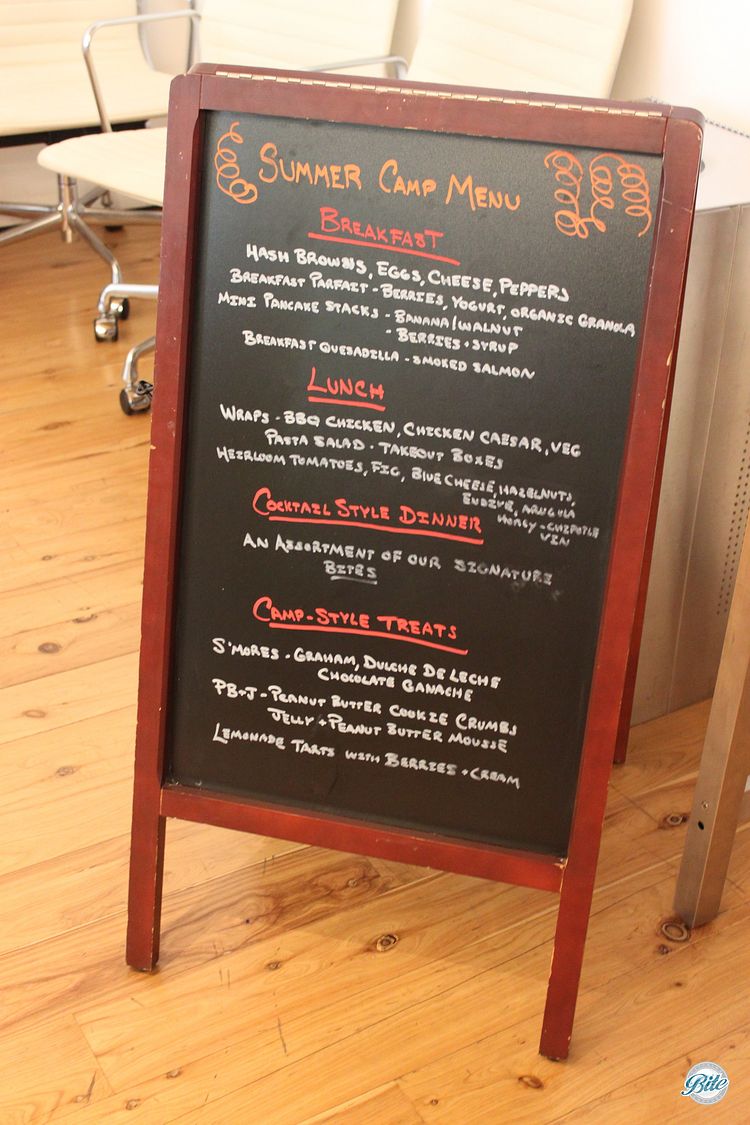 Summer Camp Menu
Breakfast
Hash Browns, Eggs, Cheese, Peppers
Breakfast Parfait - Berries, Yogurt, Organic Granola
Mini Pancake Stacks - Banana/Walnut
- Berries + Syrup
Breakfast Quesadilla - Smoked Salmon
Lunch
Wraps - BBQ Chicken, Chicken Caesar, Veg
Pasta Salad - Takeout Boxes
Heirloom Tomatoes, Fig, Blue Cheese, Hazelnuts,
Endive, Arugula
Honey - Chipotle
Vin
Cocktail Style Dinner
An Assortment of our Signature
Bites
Camp-Style Treats
S'mores - Graham, Dulche De Leche
Chocolate Ganache
PB+J - Peanut Butter Cookie Crumbs
Jelly + Peanut Butter Mousse
Lemonade Tarts with Berries + Cream
Bite